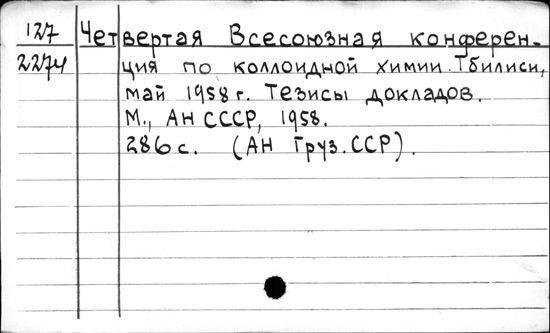 127 Четвертая Всесоюзная конферен-
2274 ция по коллоидной химии. Тбилиси,
май 1958 г. Тезисы докладов.
М., АН СССР, 1958.
286 с. (АН Груз. ССР).